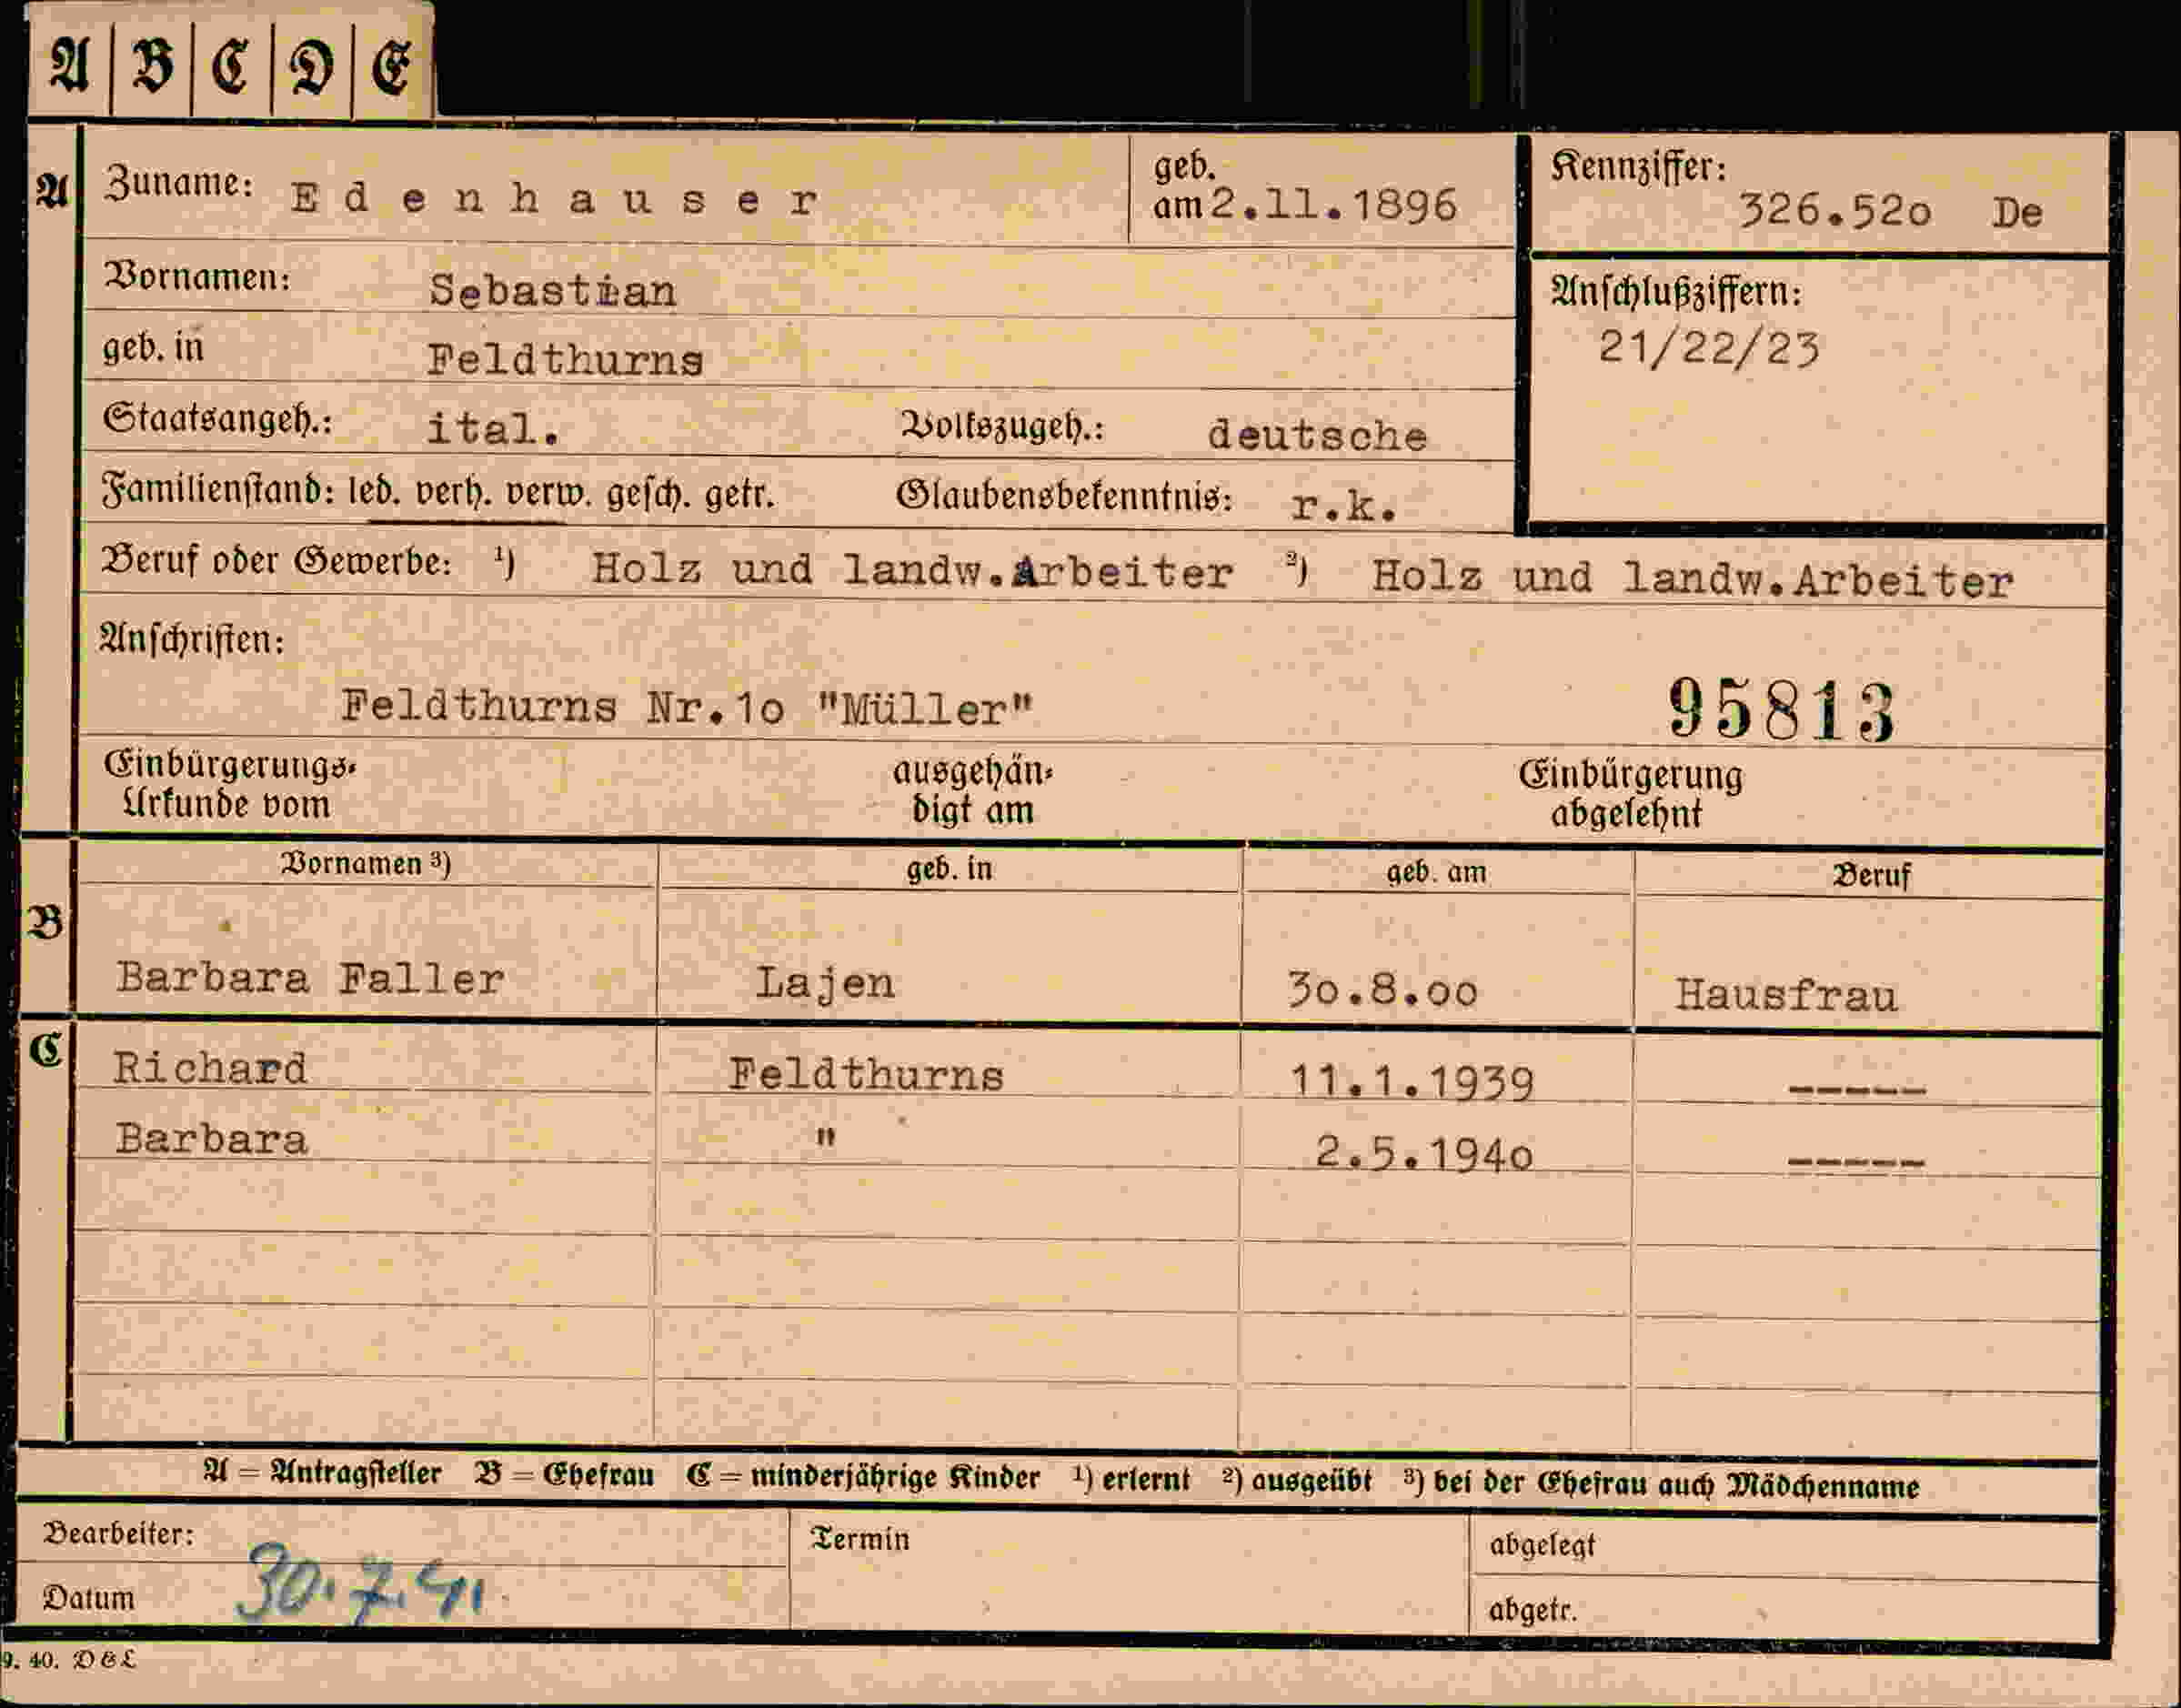 A B C D E
A Zuname: Edenhauser geb. am 2.11.1896 Kennziffer: 326.52o De
Vornamen: Sebastian Anschlußziffern:
geb. in Feldthurns 21/22/23
Staatsangeh.: ital. Volkszugeh.: deutsche
Familienstand: led. verh. verw. gesch. getr. Glaubensbekenntnis: r.k.
Beruf oder Gewerbe: ¹) Holz und landw.Arbeiter ²) Holz und landw.Arbeiter
Anschriften:
Feldthurns Nr.1o "Müller" 95813
Einbürgerungs- ausgehän- Einbürgerung
Urkunde vom digt am abgelehnt
Vornamen ³) geb. in geb. am Beruf
B
Barbara Faller Lajen 3o.8.oo Hausfrau
C Richard Feldthurns 11.1.1939 -----
Barbara " 2.5.194o -----
A = Antragsteller B = Ehefrau C = minderjährige Kinder ¹) erlernt ²) ausgeübt ³) bei der Ehefrau auch Mädchenname
Bearbeiter: Termin abgelegt
Datum 30.7.41 abgetr.
9. 40. D & L